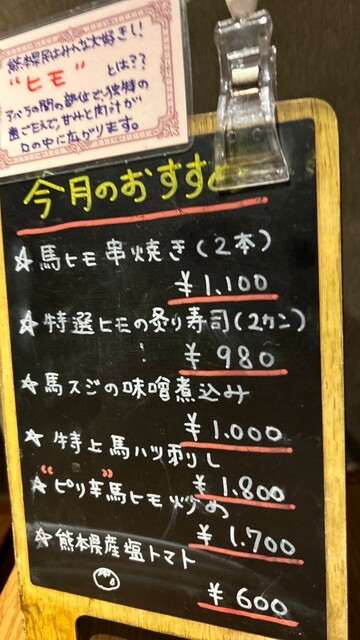 熊本県民はみんな大好き!
"ヒモ" とは??
アバラの間の部位で、独特の
歯ごたえで、甘みと肉汁が
口の中に広がります。
今月のおすすめ
☆馬ヒモ串焼き(2本)
¥1.100
☆特選ヒモの炙り寿司(2カン)
¥980
☆馬スジの味噌煮込み
¥1.000
☆特上馬ハツ刺し
¥1.800
☆"ピリ辛"馬ヒモ炒め
¥1.700
☆熊本県産塩トマト
¥600